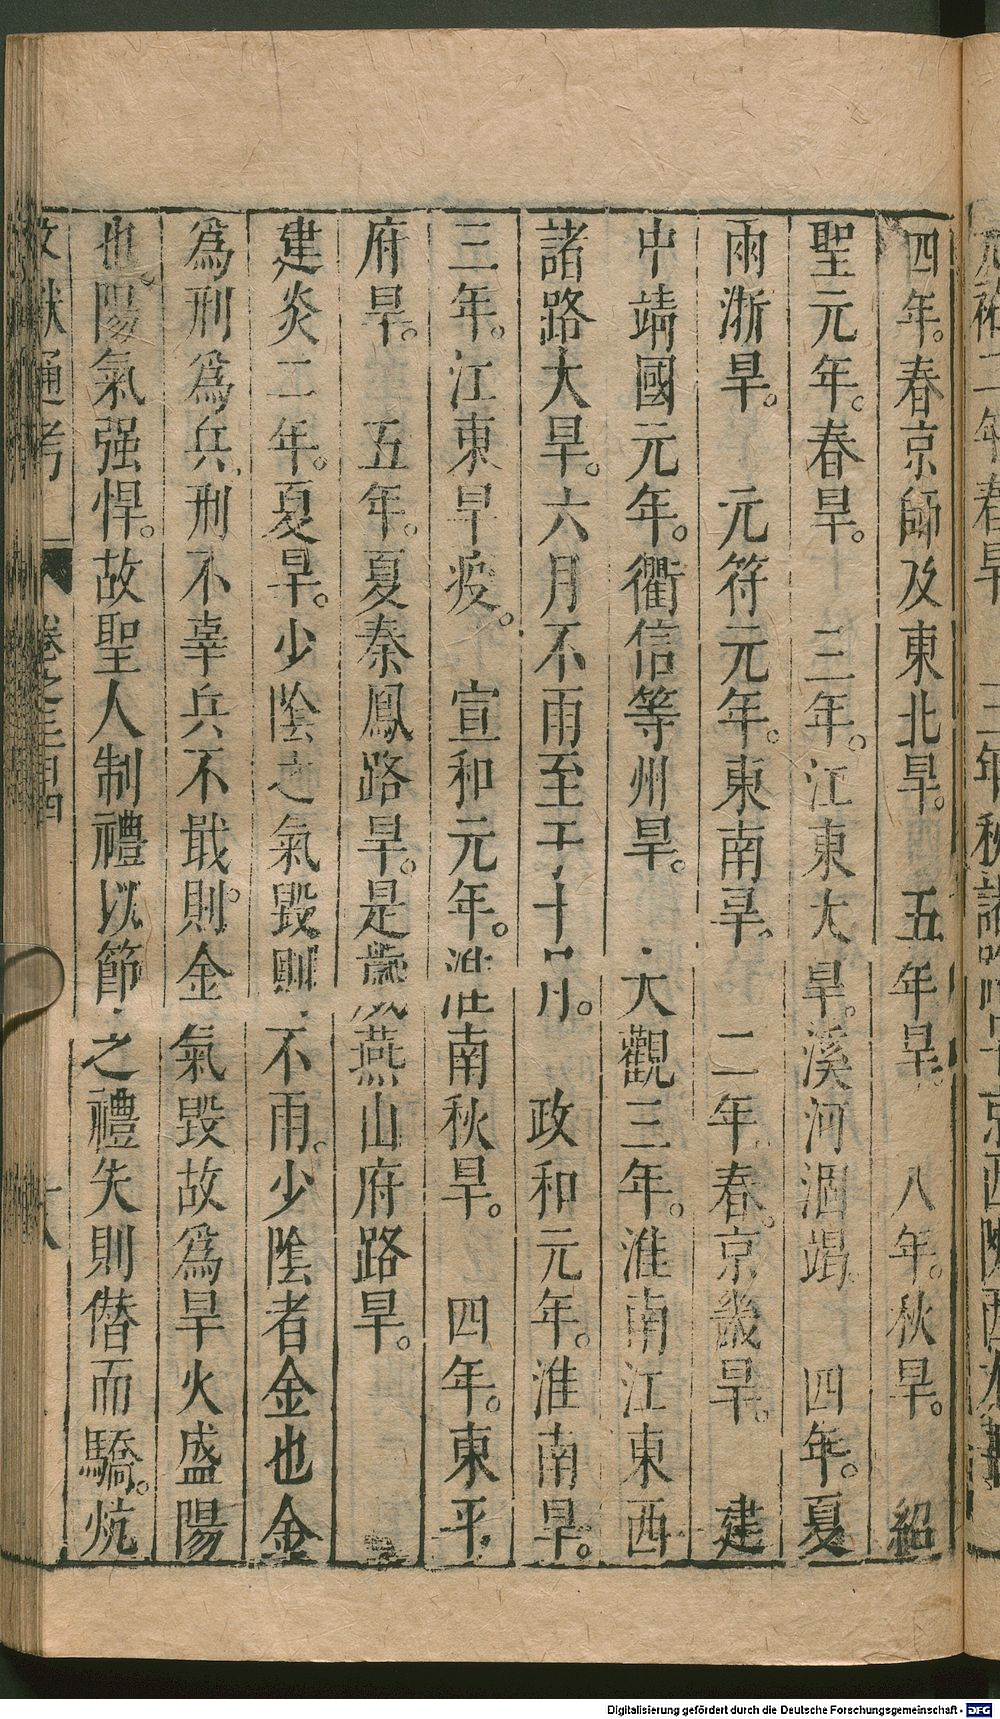 四年。春京師及東北旱。　五年旱。　八年。秋旱。　紹
聖元年。春旱。　三年。江東大旱。溪河涸竭。　四年。夏
兩浙旱。　元符元年。東南旱。　二年。春。京畿旱。　建
中靖國元年。衢信等州旱。　大觀三年。淮南江東西
諸路大旱。六月不雨至于十月。　政和元年。淮南旱。
三年。江東旱疫。　宣和元年。淮南秋旱。　四年。東平
府旱。　五年。夏秦鳳路旱。是歲燕山府路旱。
建炎二年。夏旱。少陰之氣毀則不雨。少陰者金也金
爲刑爲兵刑不辜兵不戢則。金氣毀故爲旱火盛陽
也。陽氣强悍。故聖人制禮以節之禮失則僭而驕。炕
文獻通考　卷之三百四　十八
Digitalisierung gefördert durch die Deutsche Forschungsgemeinschaft - DFG